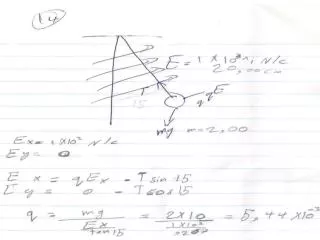 14
E = 1 x 10³ i N/C
20,00cm
T
15
qE
mg m=2,00
Ex = 1 x 10² N/C
Ey = 0
E x = qEx - T sin 15
E y = 0 - T cos 15
q = mg / (Ex / tan 15) = 2x10 / = 5,44 x10⁻³